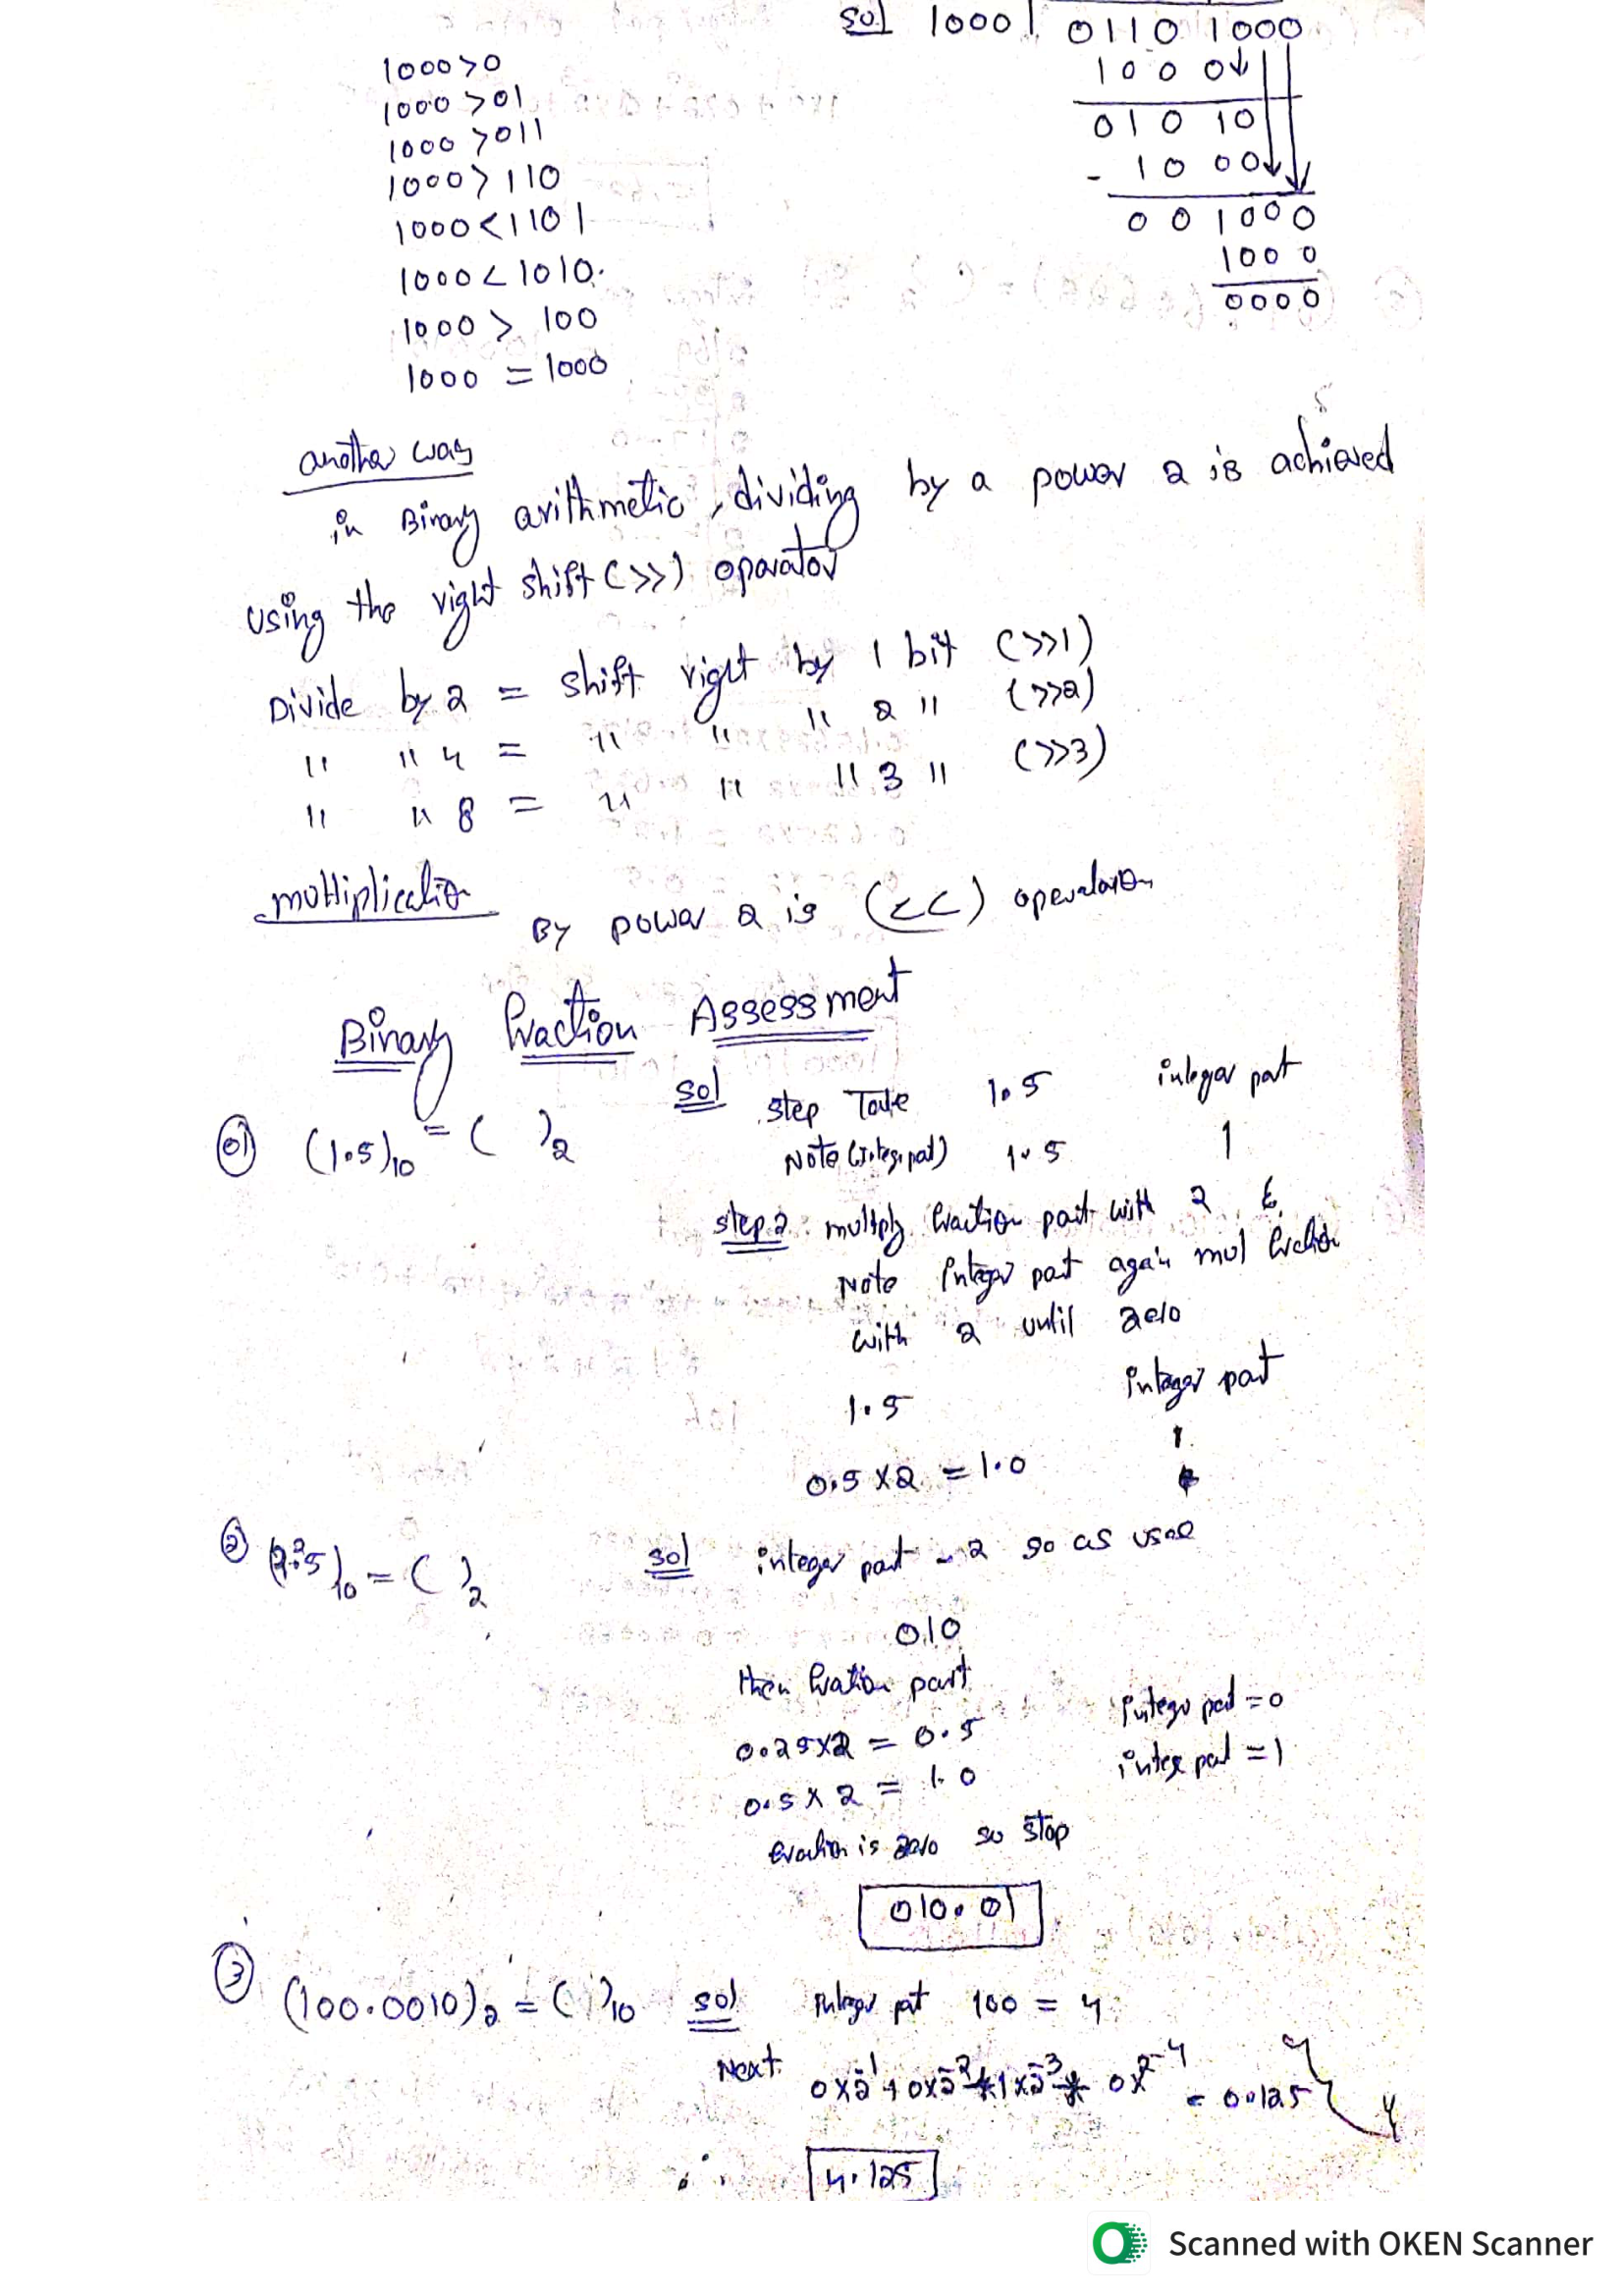 sol 1000 01101000
1000>0
1000↓
1000>01
01010
1000>011
- 1000
1000>110
001000
1000<1101
1000
1000<1010.
0000
1000> 100
1000 = 1000
another way
in Binary arithmetic, dividing by a power 2 is achieved
using the right shift (>>) operator
Divide by 2 = shift right by 1 bit (>>1)
" " 4 = " " " 2 " (>>2)
" " 8 = " " " 3 " (>>3)
multiplication
By power 2 is (<<)
Binary Fraction Assessment
01 (1.5)10 = ( )2
sol step Take 1.5 integer part
Note (integ. part) 1.5 1
step 2: multiply fraction part with 2 &
Note integer part again mul fraction
with 2 until zero
1.5 integer part
1
0.5 X 2 = 1.0
2 (2.25)10 = ( )2 sol integer part - 2 so as
010
then fration part
0.25X2 = 0.5 integer part = 0
0.5 X 2 = 1.0 integer part = 1
fraction is zero so stop
010.01
3 (100.0010)2 = ( )10 sol integer part 100 = 4
Next 0x2^-1 + 0x2^-2 + 1x2^-3 + 0x2^-4 = 0.125
∴ 4.125
Scanned with OKEN Scanner